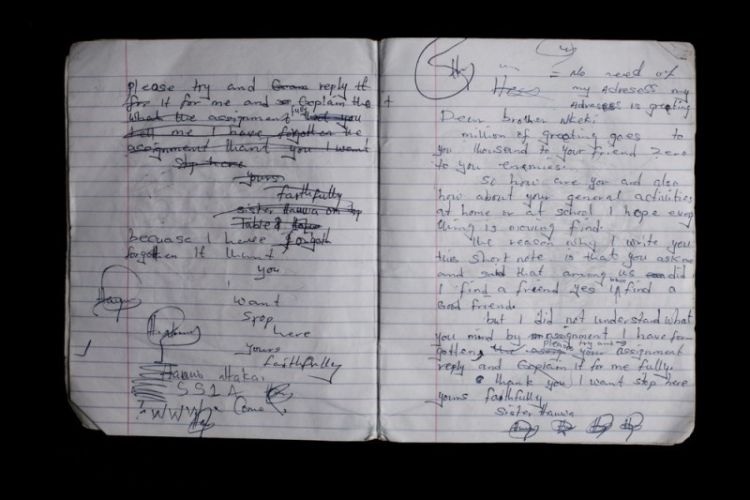 please try and reply it
for it for me and explain the
what the assignment fully that you
tell me I have forgotten the
assignment thank you I want
stop here
yours
faithfully
sister Hauwa on top
Table
because I have forgoth
forgotten it thank
you
I want
stop
here
yours
faithfully
Hauwa Ntakai
SS1A
WWW. Come
= No need of
my adresess my
adresess is greeting
Dear brother Ntaki
million of greeting goes to
you thousand to your friend zero
to you enemies.
So how are you and also
how about your general activities
at home or at school I hope every
thing is moving find.
the reason why I write you
this short note is that you ask me
and said that among us did
I find a friend yes I find a
Good friend.
but I did not understand what
you mind by assignment I have for
gotten, please try and your assignment
reply and Explain it for me fully.
thank you I want stop here
yours faithfully
Sister Hauwa